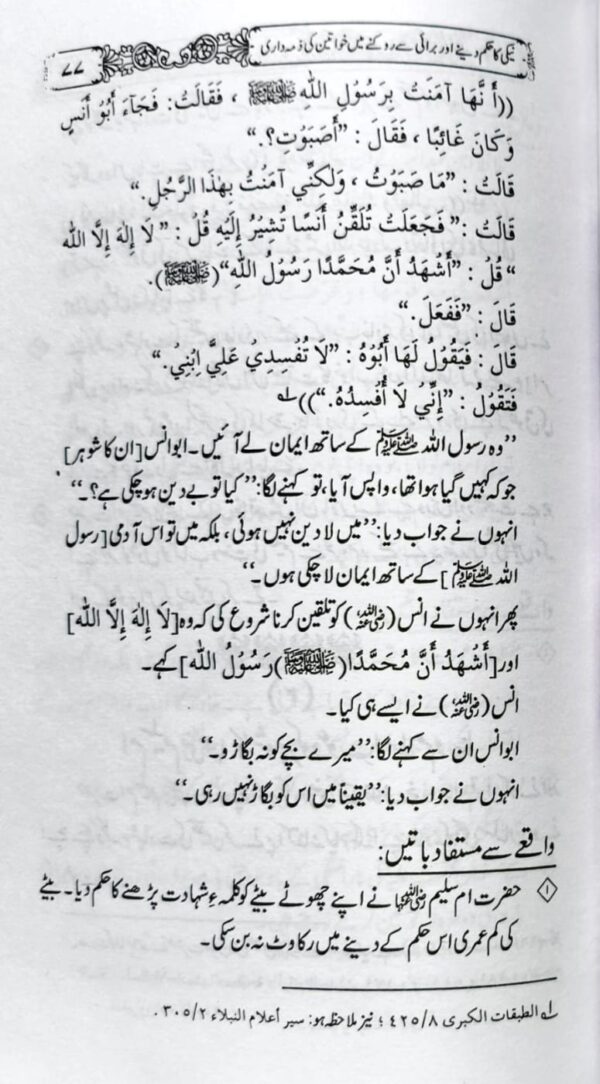 نیکی کا حکم دینے اور برائی سے روکنے میں خواتین کی ذمہ داری
۷۷
((أَنَّهَا آمَنَتْ بِرَسُولِ اللّٰهِ ﷺ ، فَقَالَتْ: فَجَآءَ أَبُوْ أَنَسٍ
وَكَانَ غَائِبًا ، فَقَالَ : ”أَصَبَوْتِ؟.“
قَالَتْ : ”مَا صَبَوْتُ ، وَلٰكِنِّي آمَنْتُ بِهٰذَا الرَّجُلِ.“
قَالَتْ : ”فَجَعَلَتْ تُلَقِّنُ أَنَسًا تُشِيْرُ إِلَيْهِ قُلْ : ”لَا إِلٰهَ إِلَّا اللّٰه
“ قُلْ : ”أَشْهَدُ أَنَّ مُحَمَّدًا رَسُوْلُ اللّٰهِ“(ﷺ).
قَالَ : ”فَفَعَلَ.“
قال : فَيَقُوْلُ لَهَا أَبُوْهُ : ”لَا تُفْسِدِيْ عَلَيَّ ابْنِيْ.“
فَتَقُوْلُ : ”إِنِّيْ لَا أُفْسِدُهُ.“))۱؎
”وہ رسول اللہ ﷺ کے ساتھ ایمان لے آئیں۔ ابوانس [ان کا شوہر]
جو کہ کہیں گیا ہوا تھا، واپس آیا، تو کہنے لگا: ”کیا تو بے دین ہوچکی ہے؟۔“
انہوں نے جواب دیا: ”میں لا دین نہیں ہوئی، بلکہ میں تو اس آدمی [رسول
اللہ ﷺ] کے ساتھ ایمان لاچکی ہوں۔“
پھر انہوں نے انس (رضی اللہ عنہ) کو تلقین کرنا شروع کی کہ وہ [لَا إِلٰهَ إِلَّا اللّٰه]
اور [أَشْهَدُ أَنَّ مُحَمَّدًا (ﷺ) رَسُوْلُ اللّٰه] کہے۔
انس (رضی اللہ عنہ) نے ایسے ہی کیا۔
ابوانس ان سے کہنے لگا: ”میرے بچے کو نہ بگاڑو۔“
انہوں نے جواب دیا: ”یقیناً میں اس کو بگاڑ نہیں رہی۔“
واقعے سے مستفاد باتیں:
۱ حضرت ام سلیم رضی اللہ عنہا نے اپنے چھوٹے بیٹے کو کلمہءِ شہادت پڑھنے کا حکم دیا۔ بیٹے
کی کم عمری اس حکم کے دینے میں رکاوٹ نہ بن سکی۔
۱؎ الطبقات الکبری ۴۲۵/۸ ؛ نیز ملاحظہ ہو: سیر أعلام النبلاء ۳۰۵/۲ .